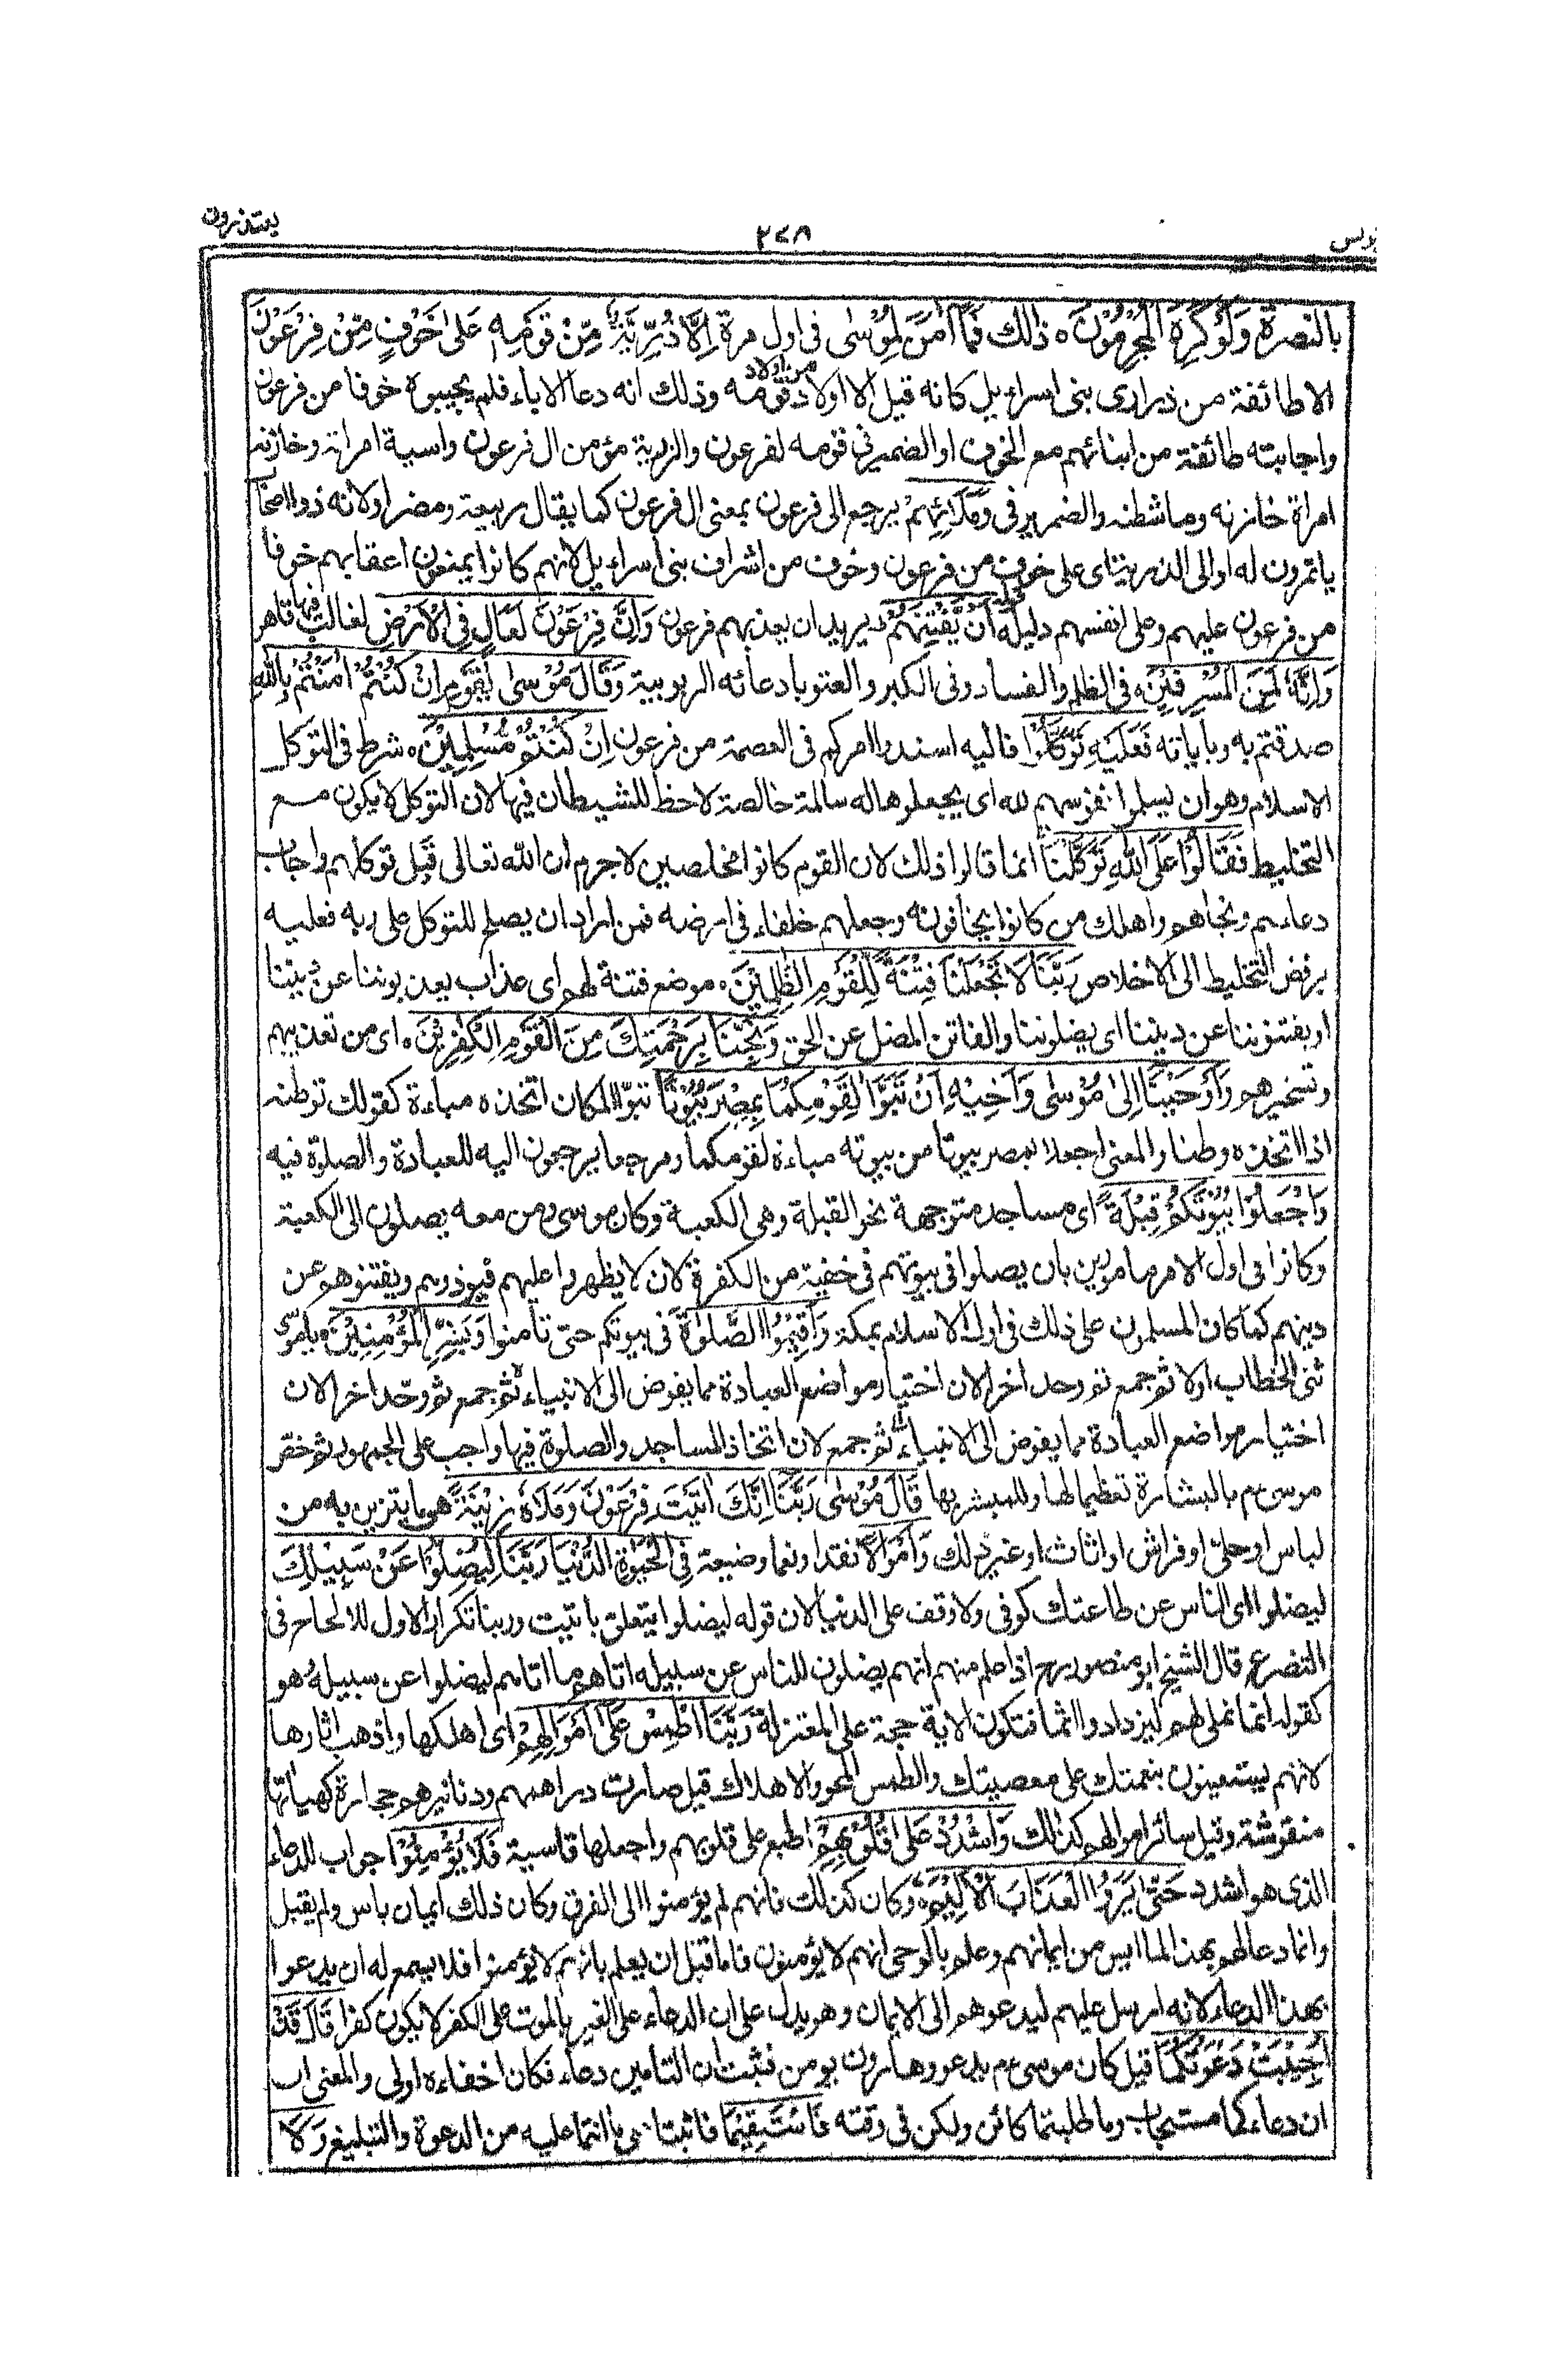 يعتذرون
٢٧٨
يونس
بالنصرة وَلَوْ كَرِهَ الْمُجْرِمُوْنَ ه ذالك فَمَآ اٰمَنَ لِمُوْسٰى فى اول مرة اِلَّا ذُرِّيَّةٌ مِّنْ قَوْمِهٖ عَلٰى خَوْفٍ مِّنْ فِرْعَوْنَ
الا طائفة من ذرارى بنى اسراءيل كانه قيل الا اولاد من اولاد قومه وذلك انه دعا الاباء فلم يجيبوه خوفا من فرعون
واجابته طائفة من ابنائهم مع الخوف او الضمير فى قومه لفرعون والذرية مؤمن ال فرعون واسية امراته وخازنه
امراة خازنه وماشطته والضمير فى وَمَلَا۟ئِهِمْ يرجع الى فرعون بمعنى ال فرعون كما يقال ربيعة ومضر اولانه ذو اصحاب
ياتمرون له اوالى الذرية اى على خوف من فرعون وخوف من اشراف بنى اسراءيل لانهم كانوا يمنعون اعقابهم خوفا
من فرعون عليهم وعلى انفسهم دليله اَنْ يَّفْتِنَهُمْ يريد ان يعذبهم فرعون وَاِنَّ فِرْعَوْنَ لَعَالٍ فِى الْاَرْضِ لغالب فيها قاهر
وَاِنَّهٗ لَمِنَ الْمُسْرِفِيْنَ ه فى الظلم والفساد وفى الكبر والعتو بادعائه الربوبية وَقَالَ مُوْسٰى يٰقَوْمِ اِنْ كُنْتُمْ اٰمَنْتُمْ بِاللّٰهِ
صدقتم به وباياته فَعَلَيْهِ تَوَكَّلُوْٓا فاليه اسندوا امركم فى العصمة من فرعون اِنْ كُنْتُمْ مُّسْلِمِيْنَ ه شرط فى التوكل
الاسلام وهو ان يسلموا نفوسهم لله اى يجعلوها له سالمة خالصة لاحظ للشيطان فيها لان التوكل لا يكون مع
التخليط فَقَالُوْا عَلَى اللّٰهِ تَوَكَّلْنَا انما قالوا ذلك لان القوم كانوا مخلصين لا جرم ان الله تعالى قَبِل توكلهم واجاب
دعاءهم ونجاهم واهلك من كانوا يخافونه وجعلهم خلفاء فى ارضه فمن اراد ان يصلح للتوكل على ربه فعليه
برفض التخليط الى الاخلاص رَبَّنَا لَا تَجْعَلْنَا فِتْنَةً لِّلْقَوْمِ الظّٰلِمِيْنَ ه موضع فتنة لهم اى عذاب يعذبوننا عن ديننا
او يفتنوننا عن ديننا اى يضلوننا والفاتن المضل عن الحق وَنَجِّنَا بِرَحْمَتِكَ مِنَ الْقَوْمِ الْكٰفِرِيْنَ ه اى من تعذيبهم
وتسخيرهم وَاَوْحَيْنَآ اِلٰى مُوْسٰى وَاَخِيْهِ اَنْ تَبَوَّاٰ لِقَوْمِكُمَا بِمِصْرَ بُيُوْتًا تبوّا المكان اتخذه مباءة كقولك توطنه
اذا اتخذه وطنا والمعنى اجعلا بمصر بيوتا من بيوته مباءة لقومكما ومرجعا يرجعون اليه للعبادة والصلوة فيه
وَاجْعَلُوْا بُيُوْتَكُمْ قِبْلَةً اى مساجد متوجهة نحو القبلة وهى الكعبة وكان موسى ومن معه يصلون الى الكعبة
وكانوا فى اول الامر مامورين بان يصلوا فى بيوتهم فى خفية من الكفرة لان لا يظهروا عليهم فيؤذوهم ويفتنوهم عن
دينهم كما كان المسلمون على ذلك فى اول الاسلام بمكة وَاَقِيْمُوا الصَّلٰوةَ فى بيوتكم حتى تأمنوا وَبَشِّرِ الْمُؤْمِنِيْنَ ه
ثنى الخطاب اولا ثم جمع ثم وحد اخرا لان اختيار مواضع العبادة مما يفوض الى الانبياء ثم جمع ثم وحّد اخرا لان
اختيار مواضع العبادة مما يفوض الى الانبياء ثم جمع لان اتخاذ المساجد والصلوة فيها واجب على الجمهور ثم خص
موسى عم بالبشارة تعظيما لها وللمبشر بها قَالَ مُوْسٰى رَبَّنَآ اِنَّكَ اٰتَيْتَ فِرْعَوْنَ وَمَلَاَهٗ زِيْنَةً هى ما يتزين به من
لباس او حلى او فراش او اثاث او غير ذلك وَاَمْوَالًا نقدا ونعما وضيعة فِى الْحَيٰوةِ الدُّنْيَا رَبَّنَا لِيُضِلُّوْا عَنْ سَبِيْلِكَ
ليضلوا اى الناس عن طاعتك كوفى ولا وقف على الدنيا لان قوله ليضلوا يتعلق باتيت وربنا تكرار الاول للالحاح فى
التضرع قال الشيخ ابو منصور رح اذا علم منهم انهم يضلون للناس عن سبيله اتاهم ما اتاهم ليضلوا عن سبيله وهو
كقوله انما نملى لهم ليزدادوا اثما فتكون الاية حجة على المعتزلة رَبَّنَا اطْمِسْ عَلٰٓى اَمْوَالِهِمْ اى اهلكها واذهب اثارها
لانهم يستعينون بنعمتك على معصيتك والطمس المحو والاهلاك قيل صارت دراهمهم ودنانيرهم حجارة كهيأتها
منقوشة وقيل سائر اموالهم كذلك وَاشْدُدْ عَلٰى قُلُوْبِهِمْ اطبع على قلوبهم واجعلها قاسية فَلَا يُؤْمِنُوْا جواب للدعاء
الذى هو اشدد حَتّٰى يَرَوُا الْعَذَابَ الْاَلِيْمَ ه وكان كذلك فانهم لم يؤمنوا الى الغرق وكان ذلك ايمان ياس ولم يقبل
وانما دعا لهم بهذا لما ايس من ايمانهم وعلم بالوحى انهم لا يؤمنون فاما قبل ان يعلم بانهم لا يؤمنوا فلا يسمع له ان يدعوا
بهذا الدعاء لانه ارسل عليهم ليدعوهم الى الايمان وهو يدل على ان الدعاء على الغير بالموت على الكفر لا يكون كفرا قَالَ قَدْ
اُجِيْبَتْ دَّعْوَتُكُمَا قيل كان موسى عم يدعو وهارون يومن فثبت ان التامين دعاء فكان اخفاءه اولى والمعنى
ان دعاءكما مستجاب وما طلبتما كائن ولكن فى وقته فَاسْتَقِيْمَا فاثبتا على ما انتما عليه من الدعوة والتبليغ وَلَا